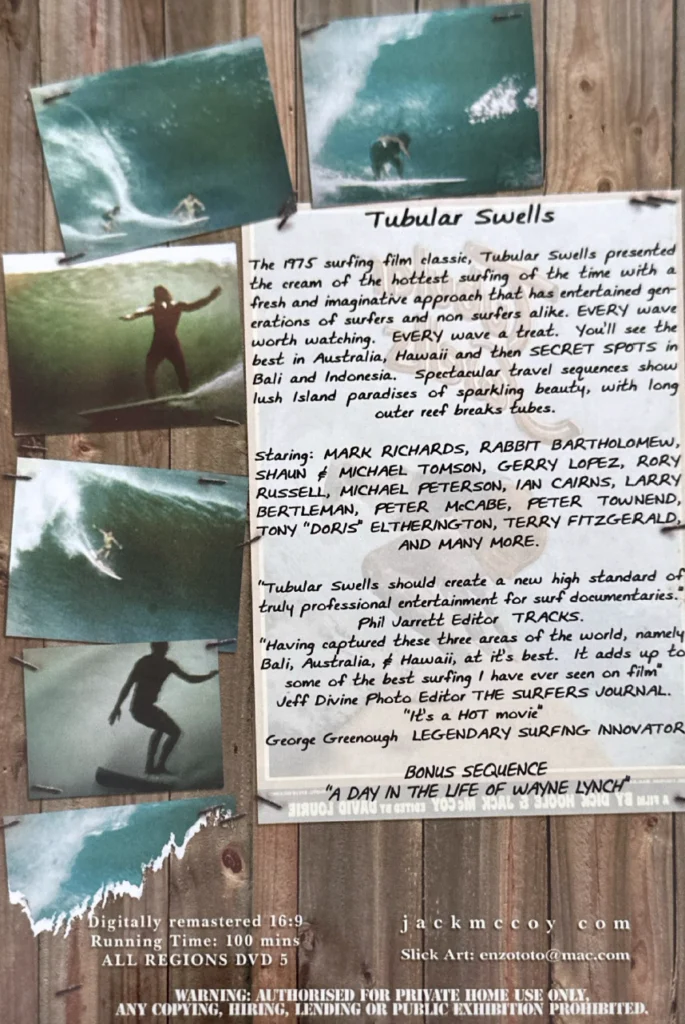 Tubular Swells
The 1975 surfing film classic, Tubular Swells presented
the cream of the hottest surfing of the time with a
fresh and imaginative approach that has entertained gen-
erations of surfers and non surfers alike. EVERY wave
worth watching. EVERY wave a treat. You'll see the
best in Australia, Hawaii and then SECRET SPOTS in
Bali and Indonesia. Spectacular travel sequences show
lush Island paradises of sparkling beauty, with long
outer reef breaks tubes.
Staring: MARK RICHARDS, RABBIT BARTHOLOMEW,
SHAUN & MICHAEL TOMSON, GERRY LOPEZ, RORY
RUSSELL, MICHAEL PETERSON, IAN CAIRNS, LARRY
BERTLEMAN, PETER McCABE, PETER TOWNEND,
TONY "DORIS" ELTHERINGTON, TERRY FITZGERALD,
AND MANY MORE.
"Tubular Swells should create a new high standard of
truly professional entertainment for surf documentaries."
Phil Jarrett Editor TRACKS.
"Having captured these three areas of the world, namely
Bali, Australia, & Hawaii, at it's best. It adds up to
some of the best surfing I have ever seen on film"
Jeff Divine Photo Editor THE SURFERS JOURNAL.
"It's a HOT movie"
George Greenough LEGENDARY SURFING INNOVATOR
BONUS SEQUENCE
"A DAY IN THE LIFE OF WAYNE LYNCH"
A FILM BY DICK HOOLE & JACK McCOY EDITED BY DAVID LOURIE
Digitally remastered 16:9
Running Time: 100 mins
ALL REGIONS DVD 5
jackmccoy com
Slick Art: enzototo@mac.com
WARNING: AUTHORISED FOR PRIVATE HOME USE ONLY.
ANY COPYING, HIRING, LENDING OR PUBLIC EXHIBITION PROHIBITED.